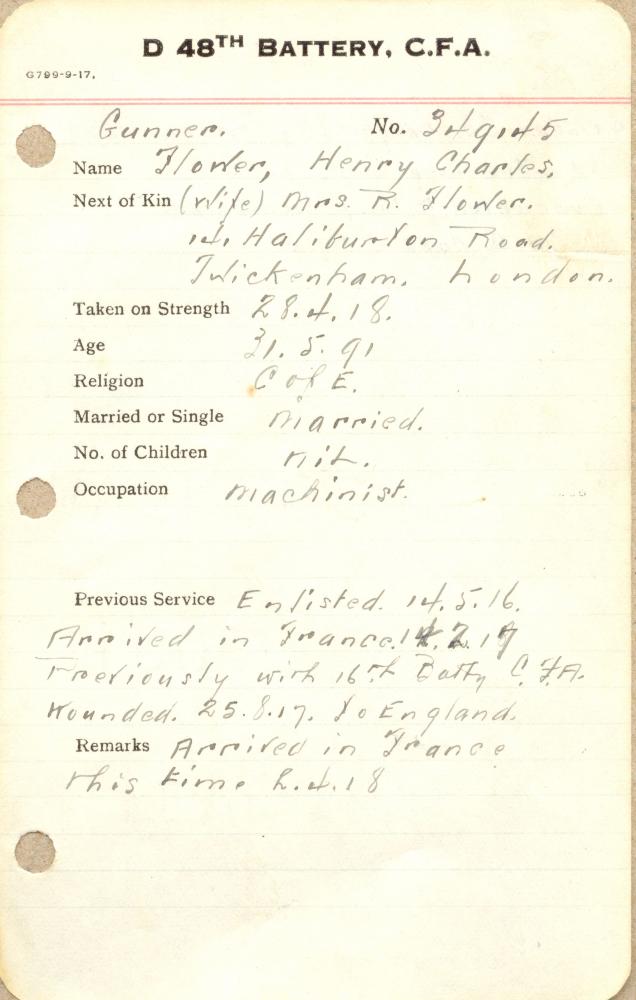 D 48TH BATTERY, C.F.A.
G799-9-17.
Gunner. No. 349145
Name Flower, Henry Charles.
Next of Kin (Wife) Mrs. R. Flower.
141 Haliburton Road.
Twickenham. London.
Taken on Strength 28.4.18.
Age 31.5.91
Religion C of E.
Married or Single Married.
No. of Children Nil.
Occupation Machinist.
Previous Service Enlisted. 14.5.16.
Arrived in France. 14.2.17
Previously with 16th Batty C.F.A.
Wounded. 25.8.17. To England.
Remarks Arrived in France
this time 2.4.18